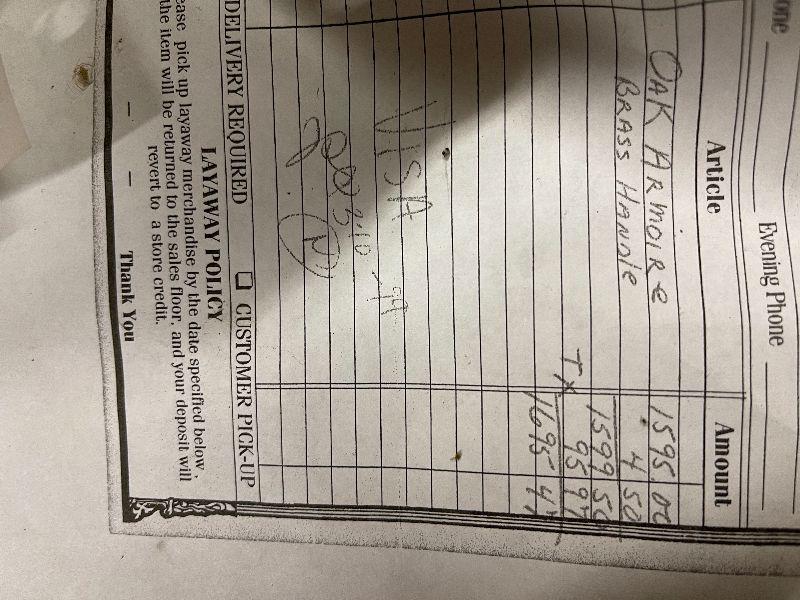 one
Evening Phone
Article Amount
OAK ARMOIRE 1595.00
BRASS HANDLE 4 50
1599 50
TX 95 97
1695 47
VISA
DELIVERY REQUIRED ☐ CUSTOMER PICK-UP
LAYAWAY POLICY
ease pick up layaway merchandise by the date specified below,
the item will be returned to the sales floor, and your deposit will
revert to a store credit.
Thank You